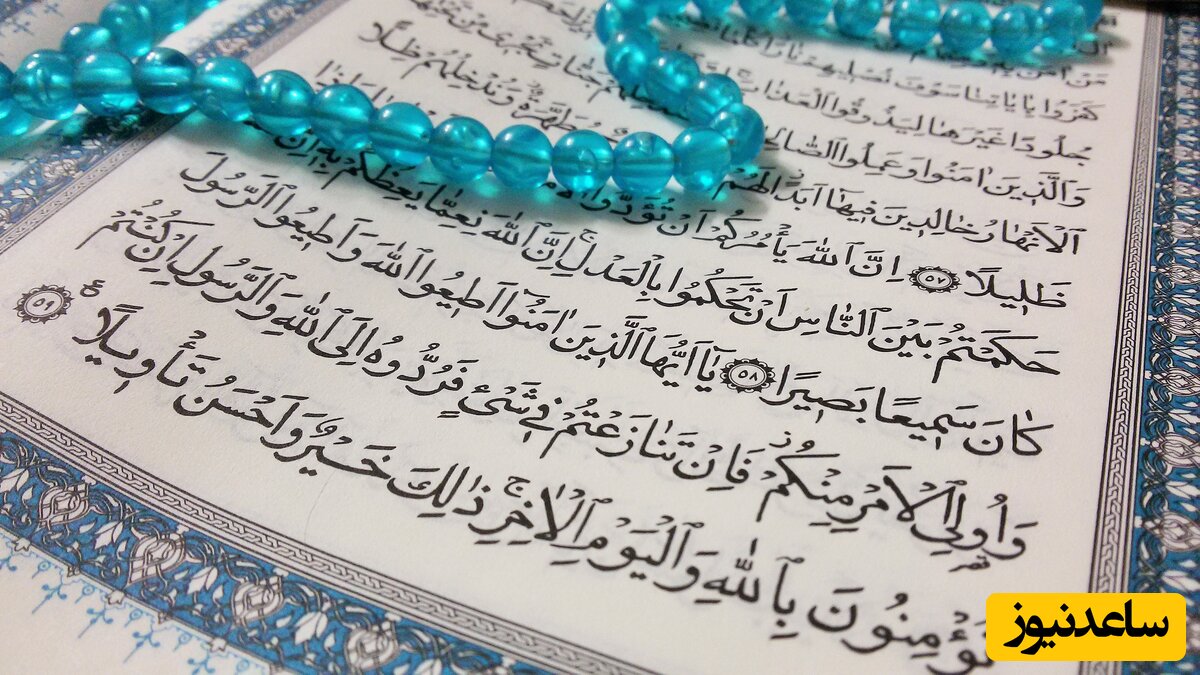 مَنْ اٰمَنَ
كَفَرُوا بِاٰيَاتِنَا سَوْفَ نُصْلِيهِمْ نَارًا
جُلُودًا غَيْرَهَا لِيَذُوقُوا الْعَذَابَ
وَالَّذِينَ اٰمَنُوا وَعَمِلُوا الصَّالِحَاتِ جَنَّاتٍ تَجْرِي مِنْ تَحْتِهَا
الْاَنْهَارُ خَالِدِينَ فِيهَا اَبَدًا لَهُمْ مُطَهَّرَةٌ وَنُدْخِلُهُمْ ظِلًّا
ظَلِيلًا ٥٧ اِنَّ اللّٰهَ يَأْمُرُكُمْ اَنْ تُؤَدُّوا
حَكَمْتُمْ بَيْنَ النَّاسِ اَنْ تَحْكُمُوا بِالْعَدْلِ اِنَّ اللّٰهَ نِعِمَّا يَعِظُكُمْ بِهِ اِنَّ
كَانَ سَمِيعًا بَصِيرًا ٥٨ يَا اَيُّهَا الَّذِينَ اٰمَنُوا اَطِيعُوا اللّٰهَ وَاَطِيعُوا الرَّسُولَ
وَاُولِي الْاَمْرِ مِنْكُمْ فَاِنْ تَنَازَعْتُمْ فِي شَيْءٍ فَرُدُّوهُ اِلَى اللّٰهِ وَالرَّسُولِ اِنْ كُنْتُمْ
تُؤْمِنُونَ بِاللّٰهِ وَالْيَوْمِ الْاٰخِرِ ذٰلِكَ خَيْرٌ وَاَحْسَنُ تَأْوِيلًا ٥٩
ساعدنیوز